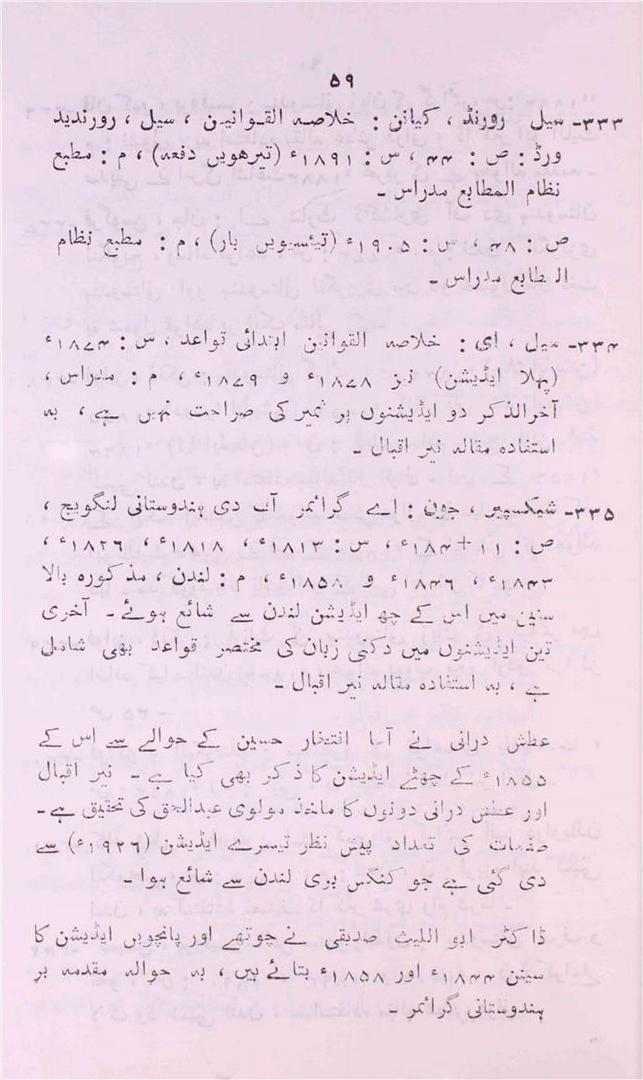 ۵۹
۳۳۳- سیل رورنڈ ، کیانن : خلاصہ القوانین ، سیل ، رورندید
ورڈ : ص : ۴۴ ، س : ۱۸۹۱ء (تیرھویں دفعہ) ، م : مطبع
نظام المطابع مدراس ۔
ص : ۴۸ ، س : ۱۹۰۵ء (تیئسیویں بار) ، م : مطبع نظام
المطابع مدراس ۔
۳۳۴- سیل ، ای : خلاصہ القوانین ابتدائی قواعد ، س : ۱۸۷۴ء
(پہلا ایڈیشن) نیز ۱۸۷۸ء و ۱۸۷۹ء ، م : مدراس ،
آخرالذکر دو ایڈیشنوں پر نمبر کی صراحت نہیں ہے ، بہ
استفادہ مقالہ نیر اقبال ۔
۳۳۵- شیکسپیر ، جون : اے گرائمر آف دی ہندوستانی لنگویج ،
ص : ۱۱ + ۱۸۴ ، س : ۱۸۱۳ء ، ۱۸۱۸ء ، ۱۸۲۶ء ،
۱۸۴۳ء ، ۱۸۴۶ء و ۱۸۵۸ء ، م : لندن ، مذکورہ بالا
سنین میں اس کے چھ ایڈیشن لندن سے شائع ہوئے ۔ آخری
تین ایڈیشنوں میں دکنی زبان کی مختصر قواعد بھی شامل
ہے ، بہ استفادہ مقالہ نیر اقبال ۔
عطش درانی نے آغا افتخار حسین کے حوالے سے اس کے
۱۸۵۵ء کے چھٹے ایڈیشن کا ذکر بھی کیا ہے ۔ نیر اقبال
اور عطش درانی دونوں کا ماخذ مولوی عبدالحق کی تحقیق ہے ۔
صفحات کی تعداد پیش نظر تیسرے ایڈیشن (۱۹۲۶ء) سے
دی گئی ہے جو کنگس بری لندن سے شائع ہوا ۔
ڈاکٹر ابو اللیث صدیقی نے چوتھے اور پانچویں ایڈیشن کا
سنین ۱۸۴۴ء اور ۱۸۵۸ء بتائے ہیں ، بہ حوالہ مقدمہ بر
ہندوستانی گرائمر ۔